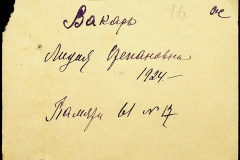 16
Вакарь
Лидия Степановна
1924 –
Памяти 61 № 17